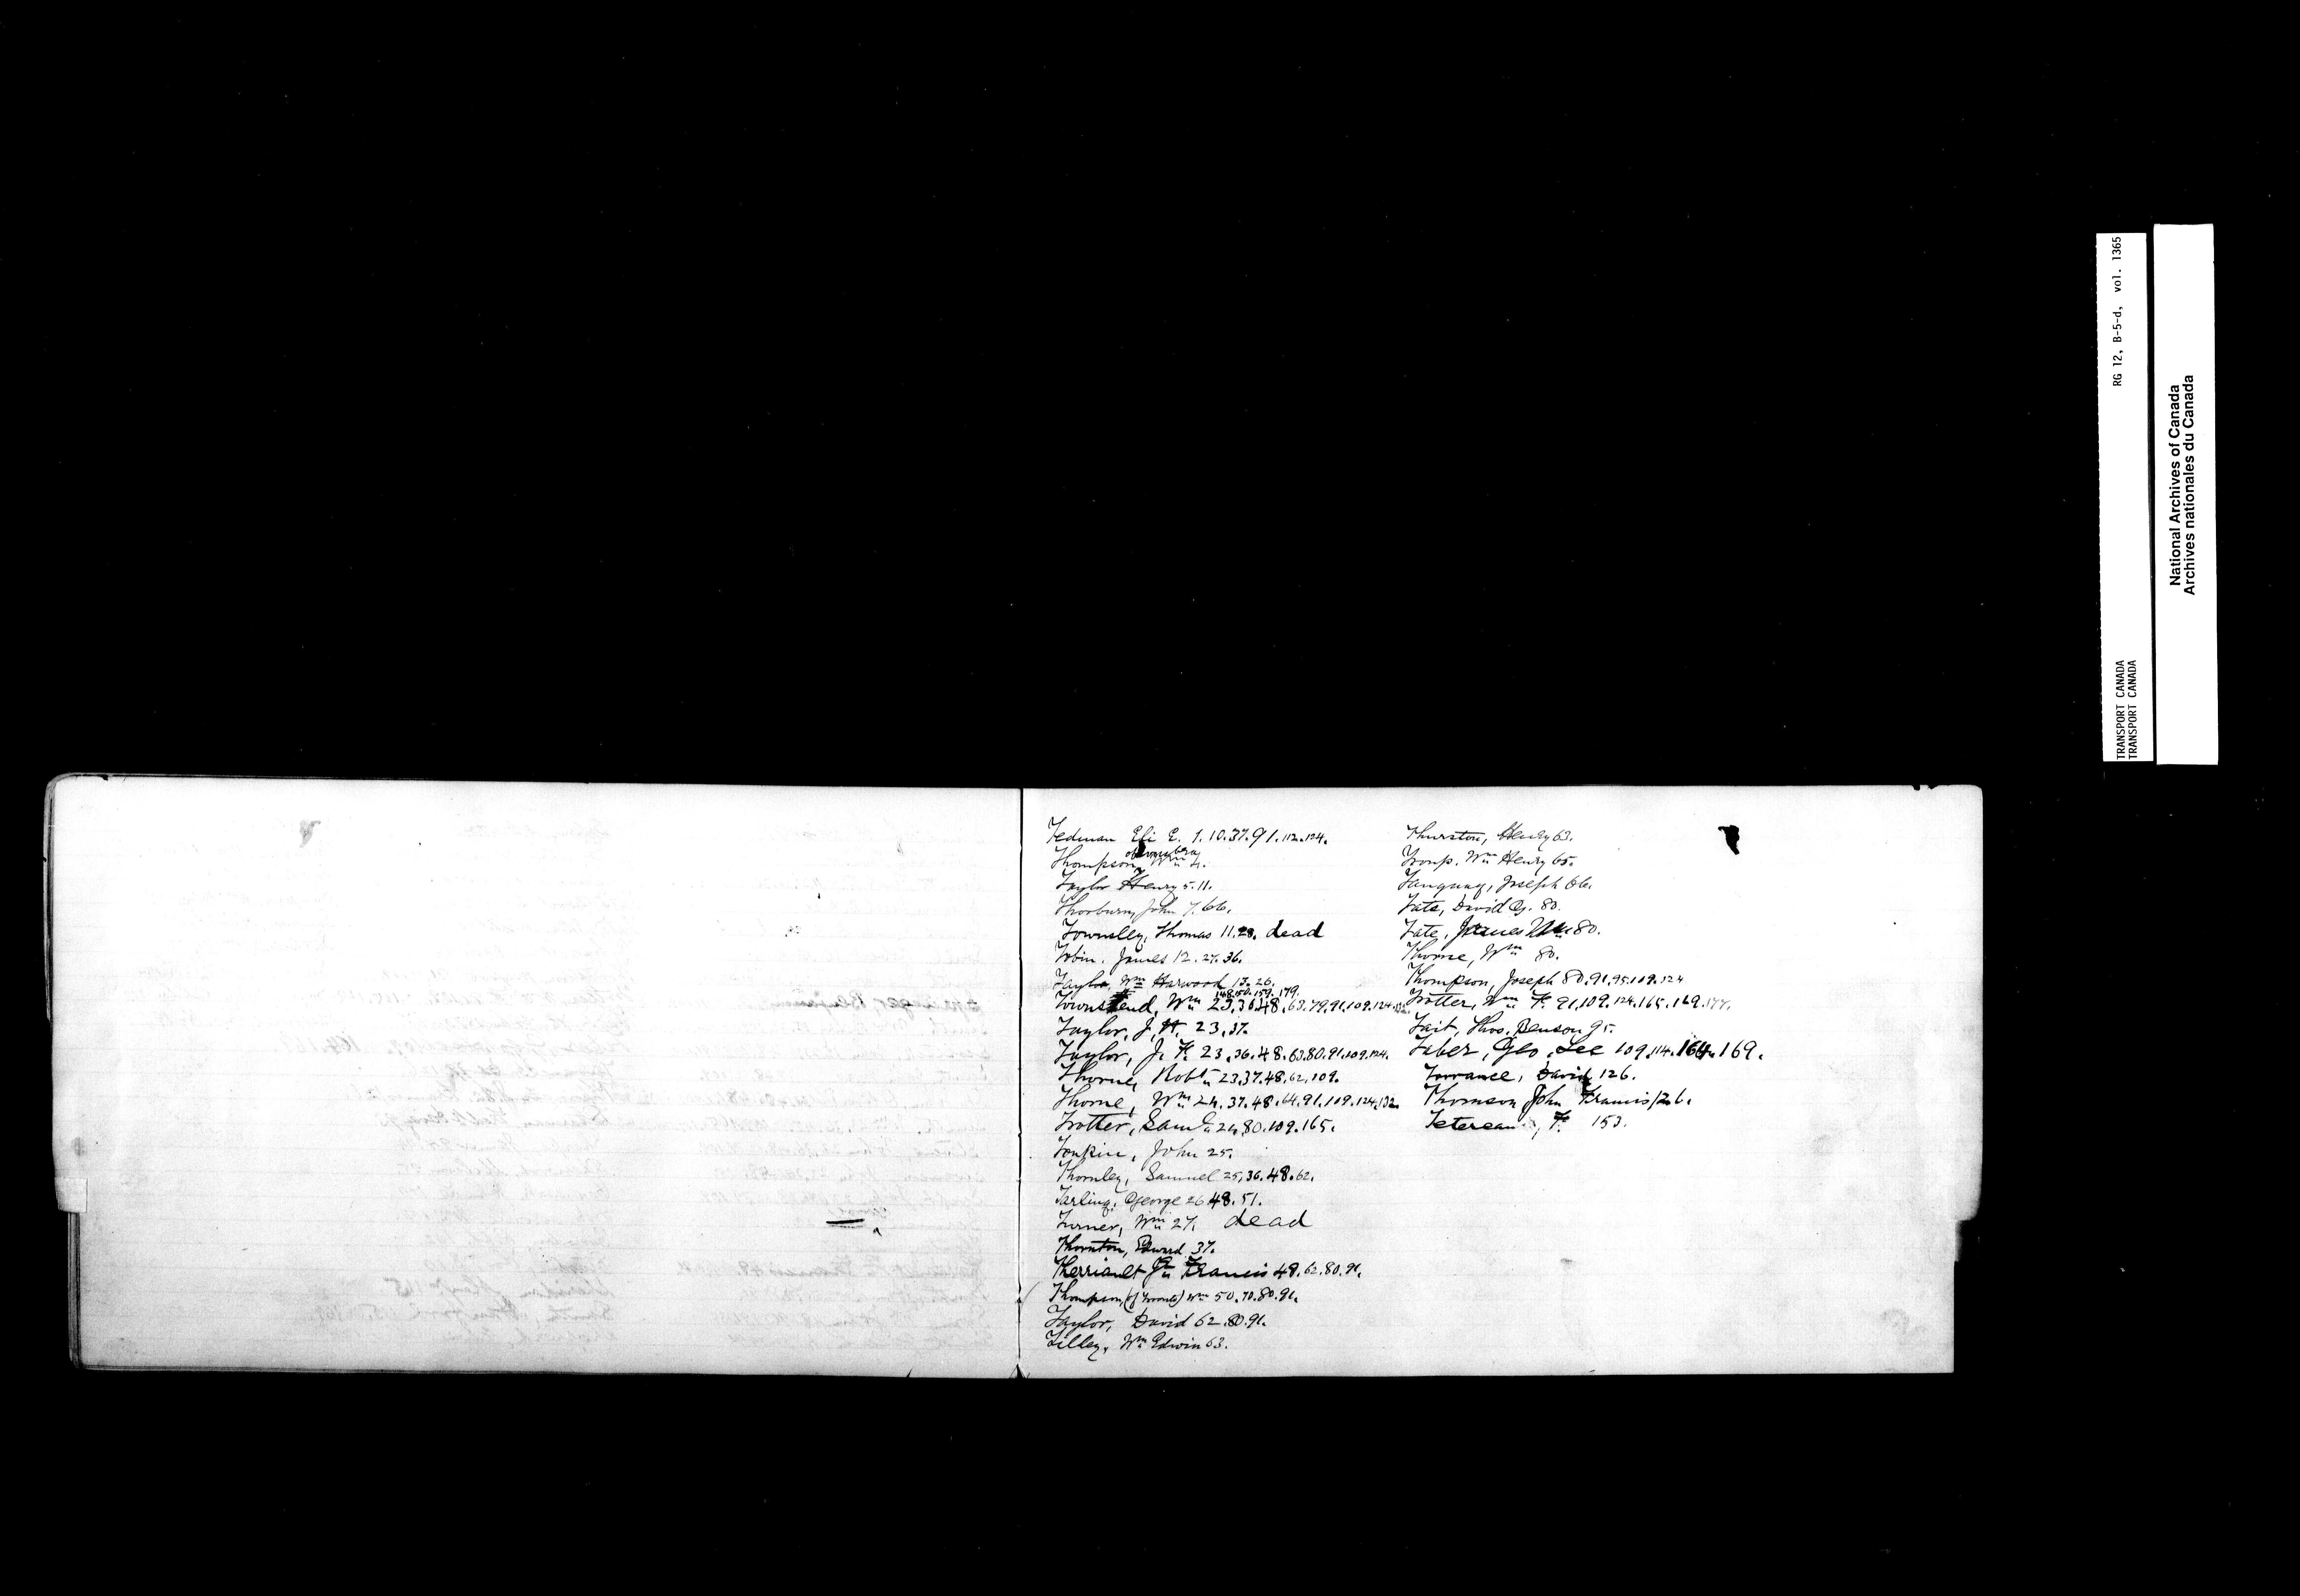 Tedman Eli E. 1.10.37.91.112.124.
Thompson, Wm 4.
Taylor Henry 5.11.
Thorburn, John 7.66.
Townsley, Thomas 11.28. dead
Tobin. James 12.27.36.
Taylor, Wm Harwood 13.26.
148.150.159.179.
Townsend, Wm 23.36.48.63.79.91.109.124.132.
Taylor, J. H. 23.37.
Taylor, J. F. 23.36.48.63.80.91.109.124.
Thorne, Robt 23.37.48.62.109.
Thorne, Wm 24.37.48.64.91.109.124.132.
Trotter, Saml 24.80.109.165.
Tonkin, John 25.
Thornley, Samuel 25.36.48.62.
Tarling, George 26.48.51.
Turner, Wm 27. dead
Thornton, Edward 37.
Therriault Jn Francis 48.62.80.91.
Thompson, (of Toronto) Wm 50.70.80.91.
Taylor, David 62.80.91.
Tilley, Wm Edwin 63.
Thurston, Henry 63.
Troup. Wm Henry 65.
Tanguay, Joseph 66.
Tate, David G. 80.
Tate, James 80.
Thorne, Wm 80.
Thompson, Joseph 80.91.95.109.124
Trotter, Wm F. 91.109.124.165.169.177.
Tait, Thos. Benson 95.
Taber, Geo. Lee 109.114.164.169.
Torrance, David 126.
Thomson John Francis 126.
Tetereau, F. 153.
RG 12, B-5-d, vol. 1365
TRANSPORT CANADA
TRANSPORT CANADA
National Archives of Canada
Archives nationales du Canada